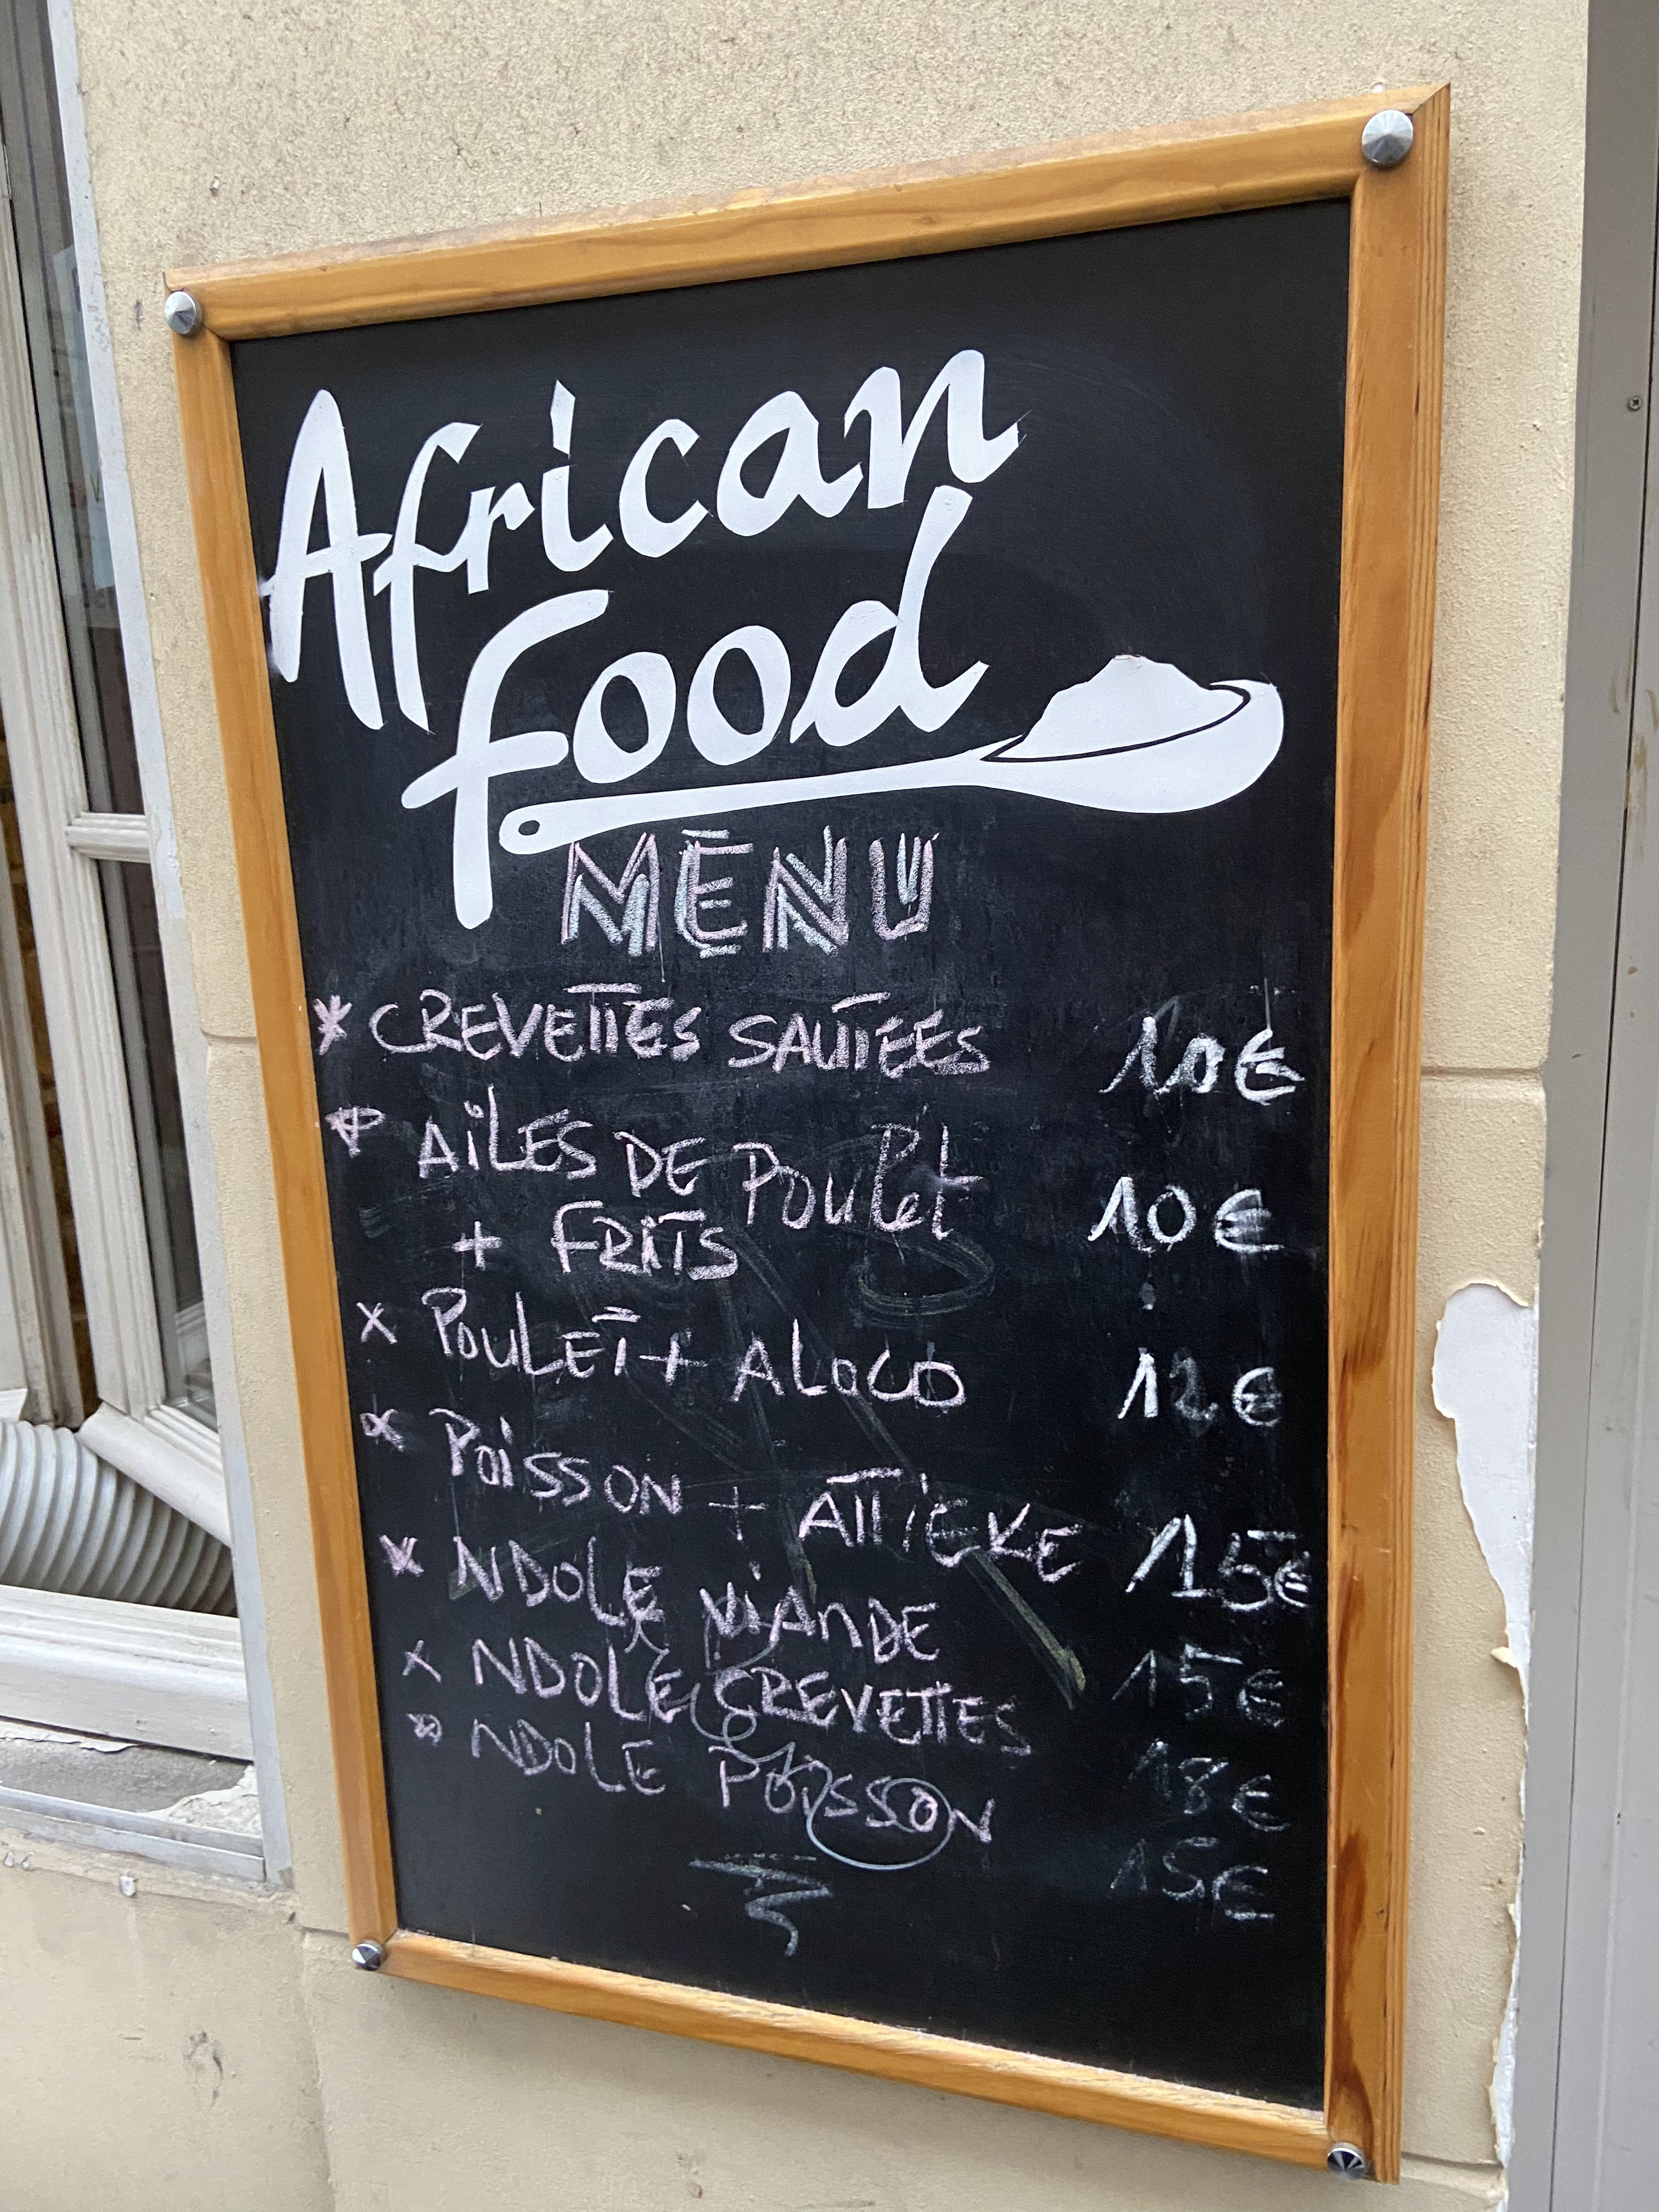 African
Food
MENU
* CREVETTES SAUTEES 10€
* AiLES DE Poulet 10€
+ FRITS
x POULET + ALOCO 12€
x POiSSON + ATTIEKE 15€
x NDOLE ViANDE 15€
x NDOLE CREVETTES 18€
x NDOLE POISSON 15€